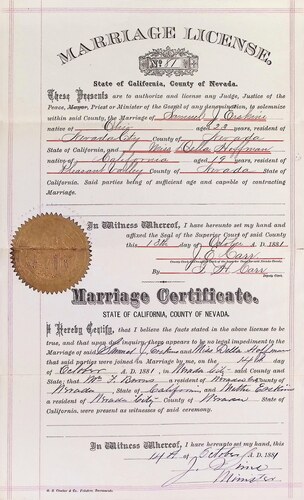 MARRIAGE LICENSE,
No. 81
State of California, County of Nevada.
These Presents are to authorize and license any Judge, Justice of the
Peace, Mayor, Priest or Minister of the Gospel of any denomination, to solemnize
within said County, the Marriage of Samuel J. Erskine
native of Ohio aged 23 years, resident of
Nevada City County of Nevada
State of California, and Miss Della Hoffman
native of California aged 19 years, resident of
Pleasant Valley County of Nevada
State of California. Said parties being of sufficient age and capable of contracting
Marriage.
In Witness Whereof, I have hereunto set my hand and
affixed the Seal of the Superior Court of said County
this 13th day of October A. D. 1881
J. E. Carr
By Carr
Marriage Certificate.
STATE OF CALIFORNIA, COUNTY OF NEVADA.
I Hereby Certify, that I believe the facts stated in the above license to be
true, and that upon due inquiry, there appears to be no legal impediment to the
Marriage of said Samuel J. Erskine and Miss Della Hoffman
that said parties were joined in Marriage by me, on the 14th of
October A. D. 1881, in Nevada City said County and
State; that Wm. F. Berns a resident of Nevada City
Nevada State of California, and Mattie Erskine
a resident of Nevada City County of Nevada State of
California, were present as witnesses of said ceremony.
In Witness Whereof, I have hereunto set my hand, this
14th of October A. D. 1881
J. Sims
Minister